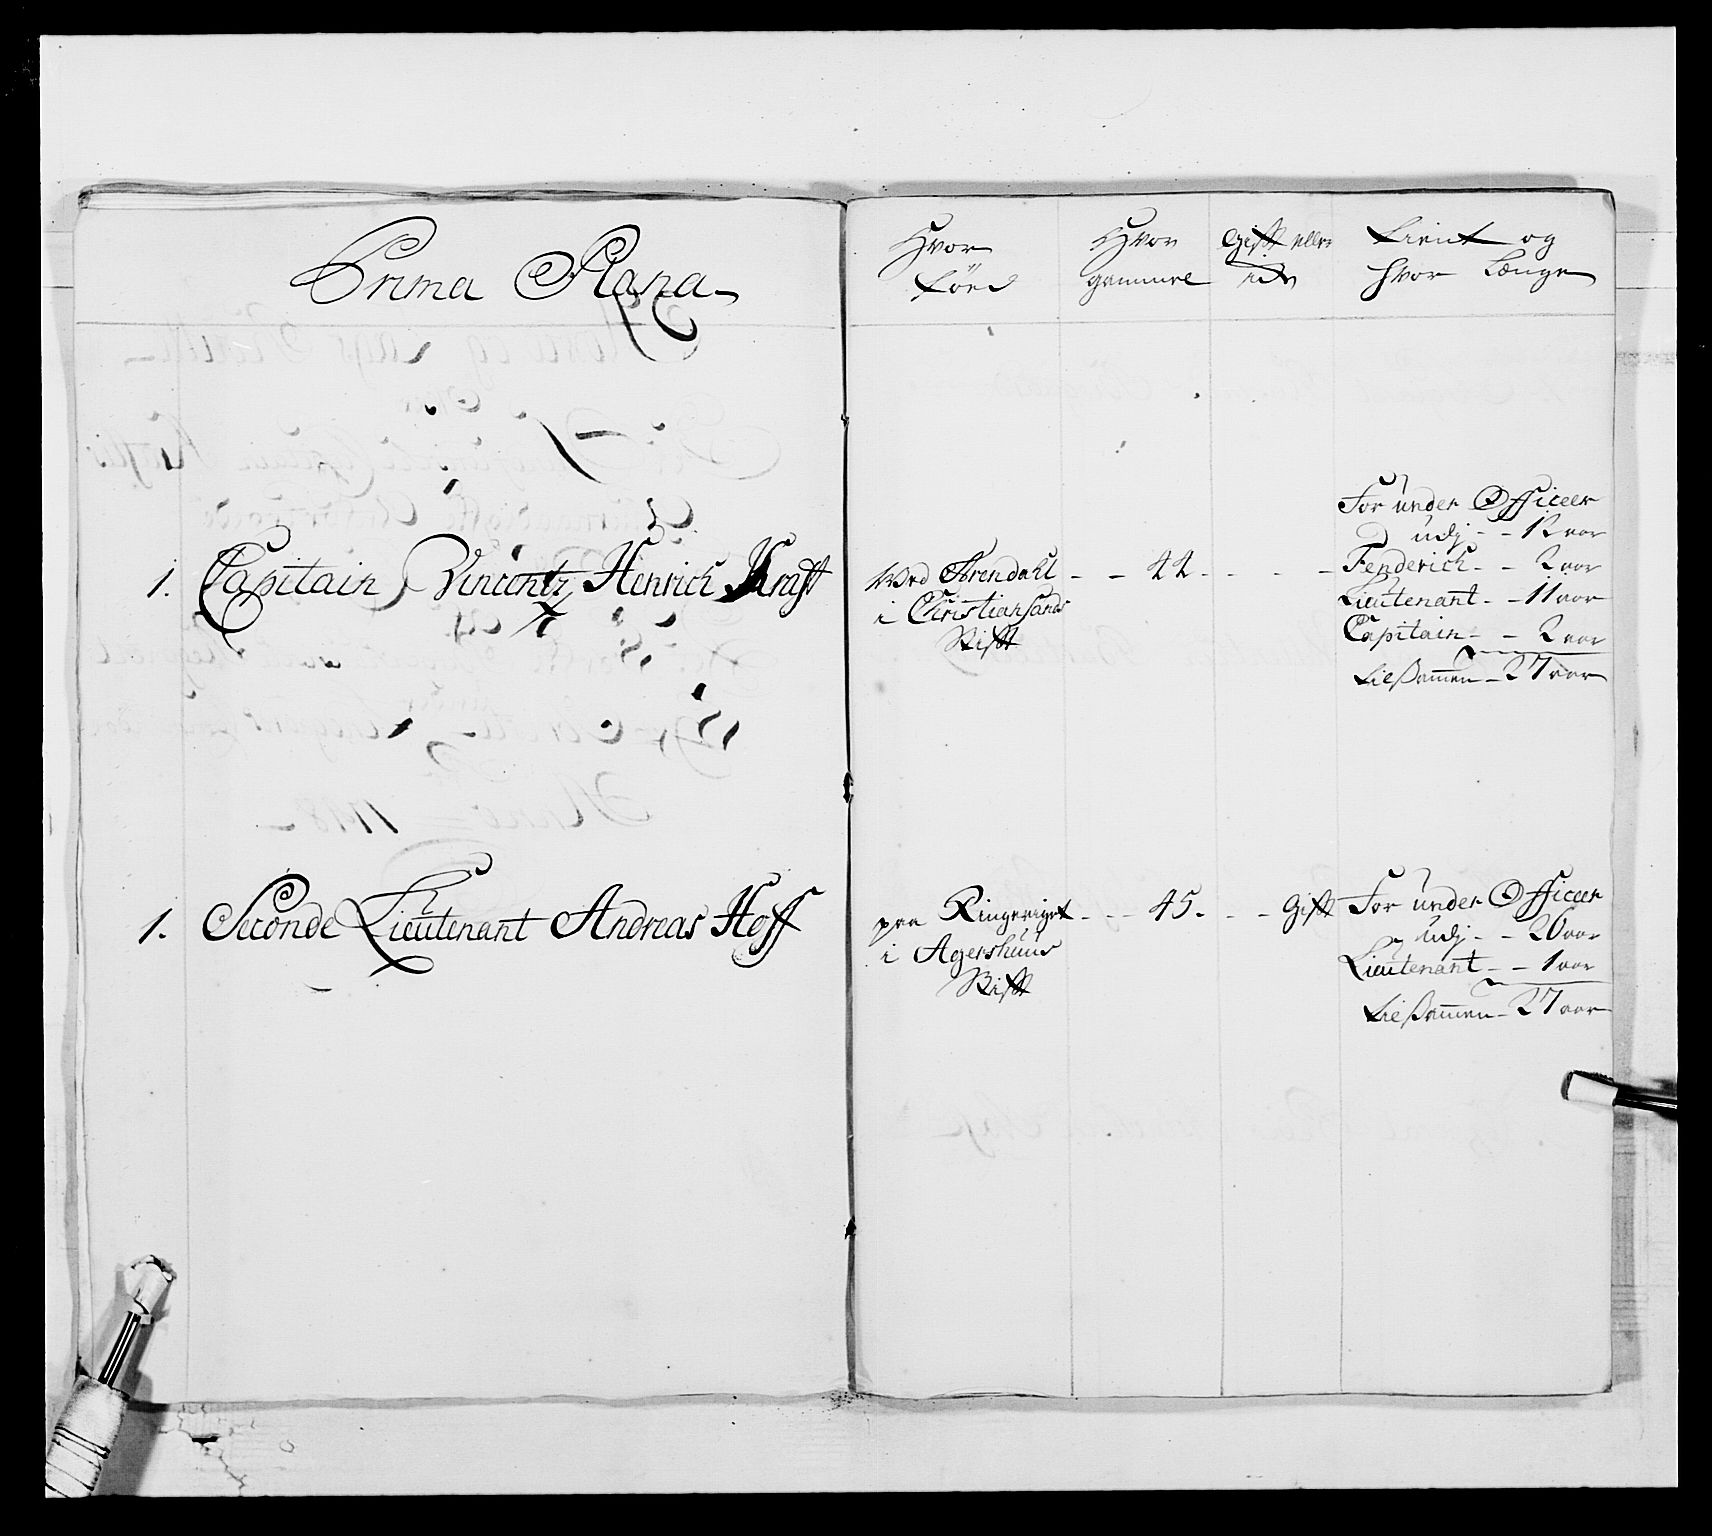 Prima Plana
Hvor
föed
Hvor
gammel
Gift eller
ei
Tient og
hvor Længe
1. Capitain Vincentz Henrich Kraft
Ved Arendahl - - 44 - - - -
i Christiansands
Stift
For under Officeer
udj - - 12 aar
Fenderich - - 2 aar
Lieutenant - - 11 aar
Capitain - - 2 aar
Tilsammen - 27 aar
1. Seconde Lieutenant Andreas Hoff
paa Ringeriget - - - 45 - - - Gift
i Agershuus
Stift
For under Officeer
udj - - 26 aar
Lieutenant - - 1 aar
Tilsammen - 27 aar